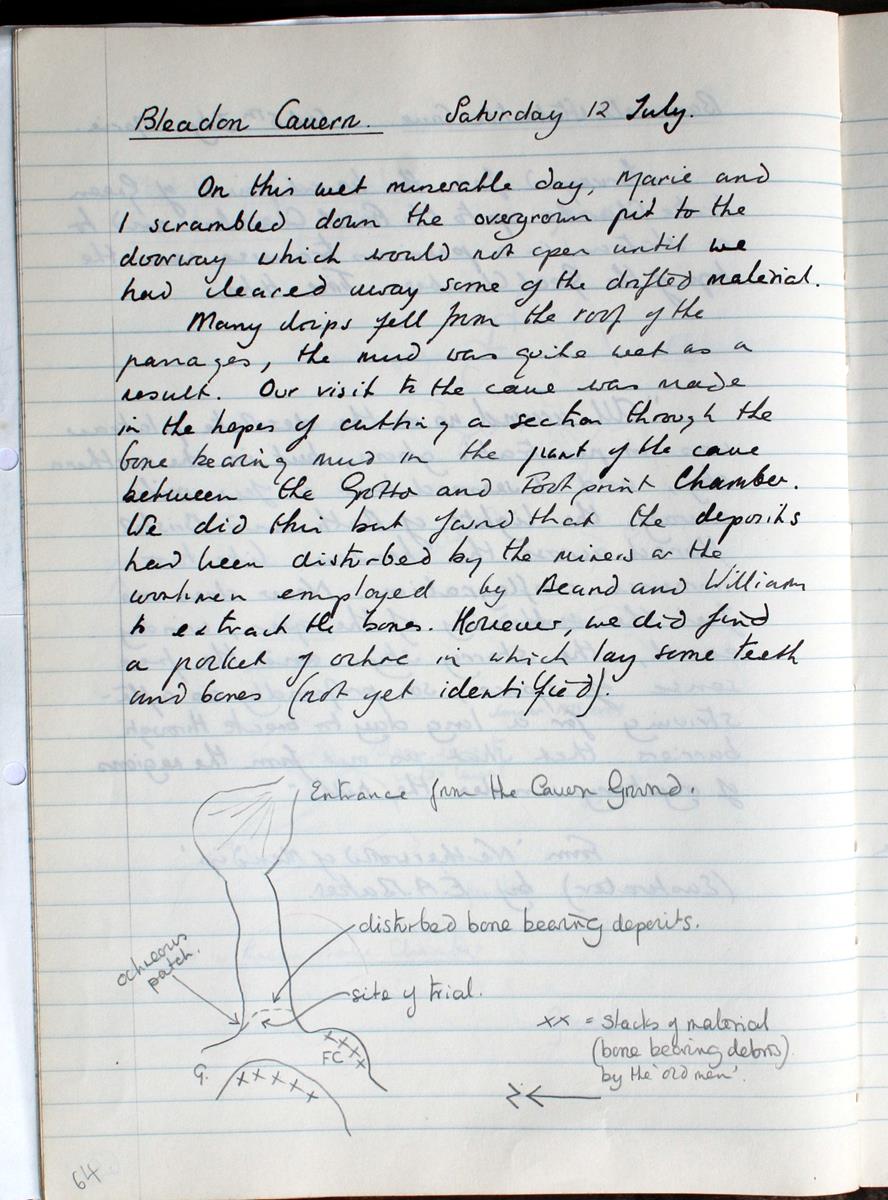 Bleadon Cavern. Saturday 12 July.
On this wet miserable day, Marie and
I scrambled down the overgrown pit to the
doorway which would not open until we
had cleared away some of the drifted material.
Many drips fell from the roof of the
passages, the mud was quite wet as a
result. Our visit to the cave was made
in the hopes of cutting a section through the
bone bearing mud in the part of the cave
between the Grotto and Footprint Chamber.
We did this but found that the deposits
had been disturbed by the miners or the
workmen employed by Beard and William
to extract the bones. However, we did find
a pocket of ochre in which lay some teeth
and bones (not yet identified).
Entrance from the Cavern Ground.
disturbed bone bearing deposits.
ochreous
patch.
site of trial.
xx = stacks of material
(bone bearing debris)
by the 'old men'.
FC
G.
xxxx
xxxx x
N
64